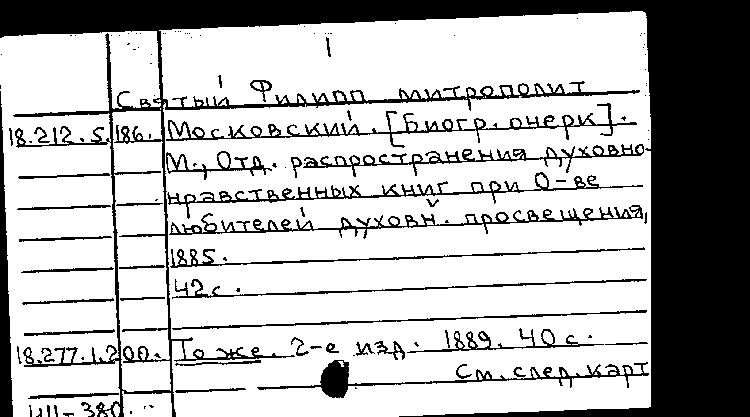 1
Святый Филипп митрополит
18.212.5.186. Московский. [Биогр. очерк].
М., Отд. распространения духовно-
нравственных книг при О-ве
любителей духовн. просвещения,
1885.
42 с.
18.277.1.200. То же. 2-е изд. 1889. 40 с.
См. след. карт